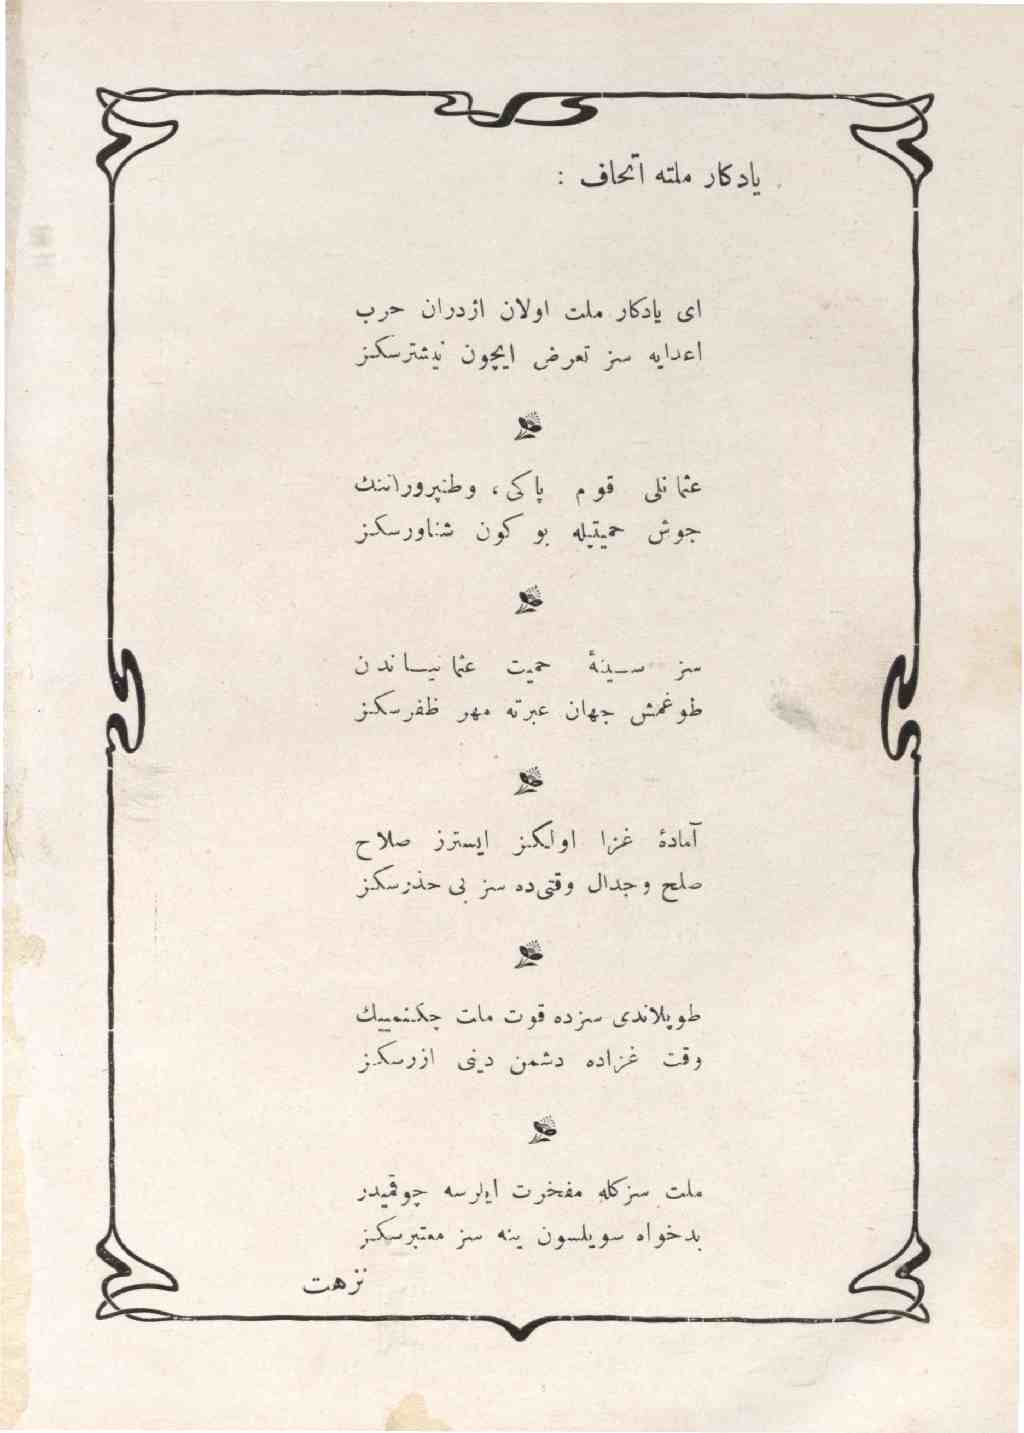 یادكار ملته اتحاف :
ای یادكار ملت اولان اژدران حرب
اعدایه سز تعرض ایچون نیشترسكز
عثمانلی قوم پاكی، وطنپرورانننك
جوش حمیتیله بو كون شناورسكز
سز سینهٔ حمیت عثمانیاندن
طوغمش جهان عبرته مهر ظفرسكز
آمادهٔ غزا اولكز ایسترز صلاح
صلح وجدال وقتی‌ده سز بی حذرسكز
طوپلاندی سزده قوت ملت چكنمییك
وقت غزاده دشمن دینی ازرسكز
ملت سزكله مفخرت ایلرسه چوقمیدر
بدخواه سویلسون ینه سز معتبرسكز
نزهت